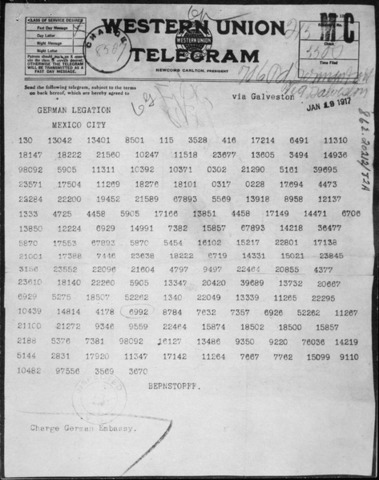 CLASS OF SERVICE DESIRED
Fast Day Message
Day Letter
Night Message
Night Letter
WESTERN UNION
WESTERN UNION
TELEGRAM
NEWCOMB CARLTON, PRESIDENT
CHARGE
MC
Time Filed
Send the following telegram, subject to the terms
on back hereof, which are hereby agreed to
via Galveston
JAN 19 1917
GERMAN LEGATION
MEXICO CITY
130 13042 13401 8501 115 3528 416 17214 6491 11310
18147 18222 21560 10247 11518 23677 13605 3494 14936
98092 5905 11311 10392 10371 0302 21290 5161 39695
23571 17504 11269 18276 18101 0317 0228 17694 4473
22284 22200 19452 21589 67893 5569 13918 8958 12137
1333 4725 4458 5905 17166 13851 4458 17149 14471 6706
13850 12224 6929 14991 7382 15857 67893 14218 36477
5870 17553 67893 5870 5454 16102 15217 22801 17138
21001 17388 7446 23638 18222 6719 14331 15021 23845
3156 23552 22096 21604 4797 9497 22464 20855 4377
23610 18140 22260 5905 13347 20420 39689 13732 20667
6929 5275 18507 52262 1340 22049 13339 11265 22295
10439 14814 4178 6992 8784 7632 7357 6926 52262 11267
21100 21272 9346 9559 22464 15874 18502 18500 15857
2188 5376 7381 98092 16127 13486 9350 9220 76036 14219
5144 2831 17920 11347 17142 11264 7667 7762 15099 9110
10482 97556 3569 3670
BERNSTORFF.
Charge German Embassy.